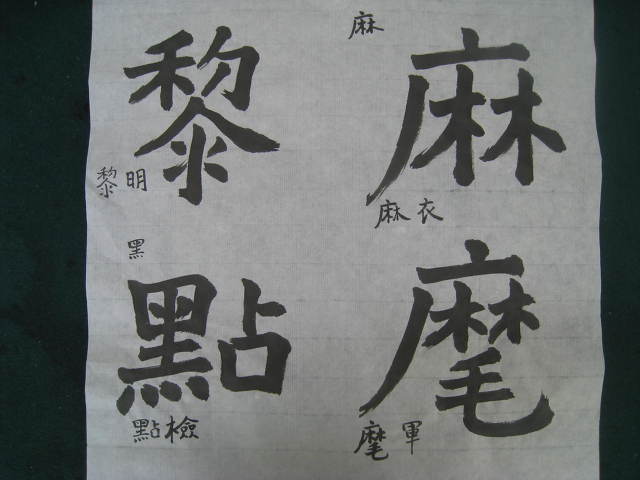 麻
麻
麻衣
麾
麾軍
黎
黎明
黑
點
點檢